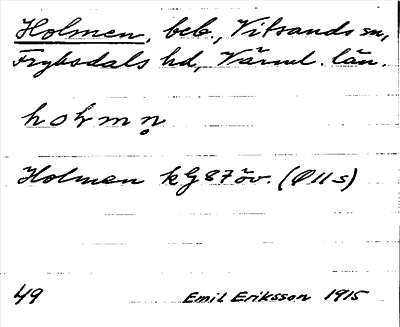 Holmen, beb., Vitsands sn,
Fryksdals hd, Värml. län.
hoḷmn̥
Holmen kG 87 öv. (Ø 11 s)
49 Emil Eriksson 1915